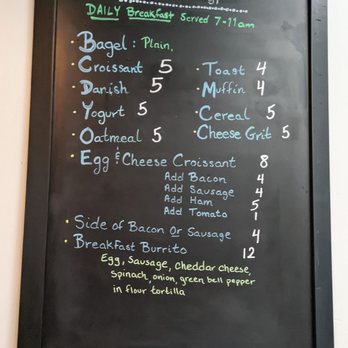 DAILY Breakfast Served 7-11am
• Bagel : Plain,
• Croissant 5 • Toast 4
• Danish 5 • Muffin 4
• Yogurt 5 • Cereal 5
• Oatmeal 5 • Cheese Grit 5
• Egg & Cheese Croissant 8
Add Bacon 4
Add Sausage 4
Add Ham 5
Add Tomato 1
• Side of Bacon Or Sausage 4
• Breakfast Burrito 12
Egg, Sausage, Cheddar cheese,
Spinach, onion, green bell pepper
in flour tortilla